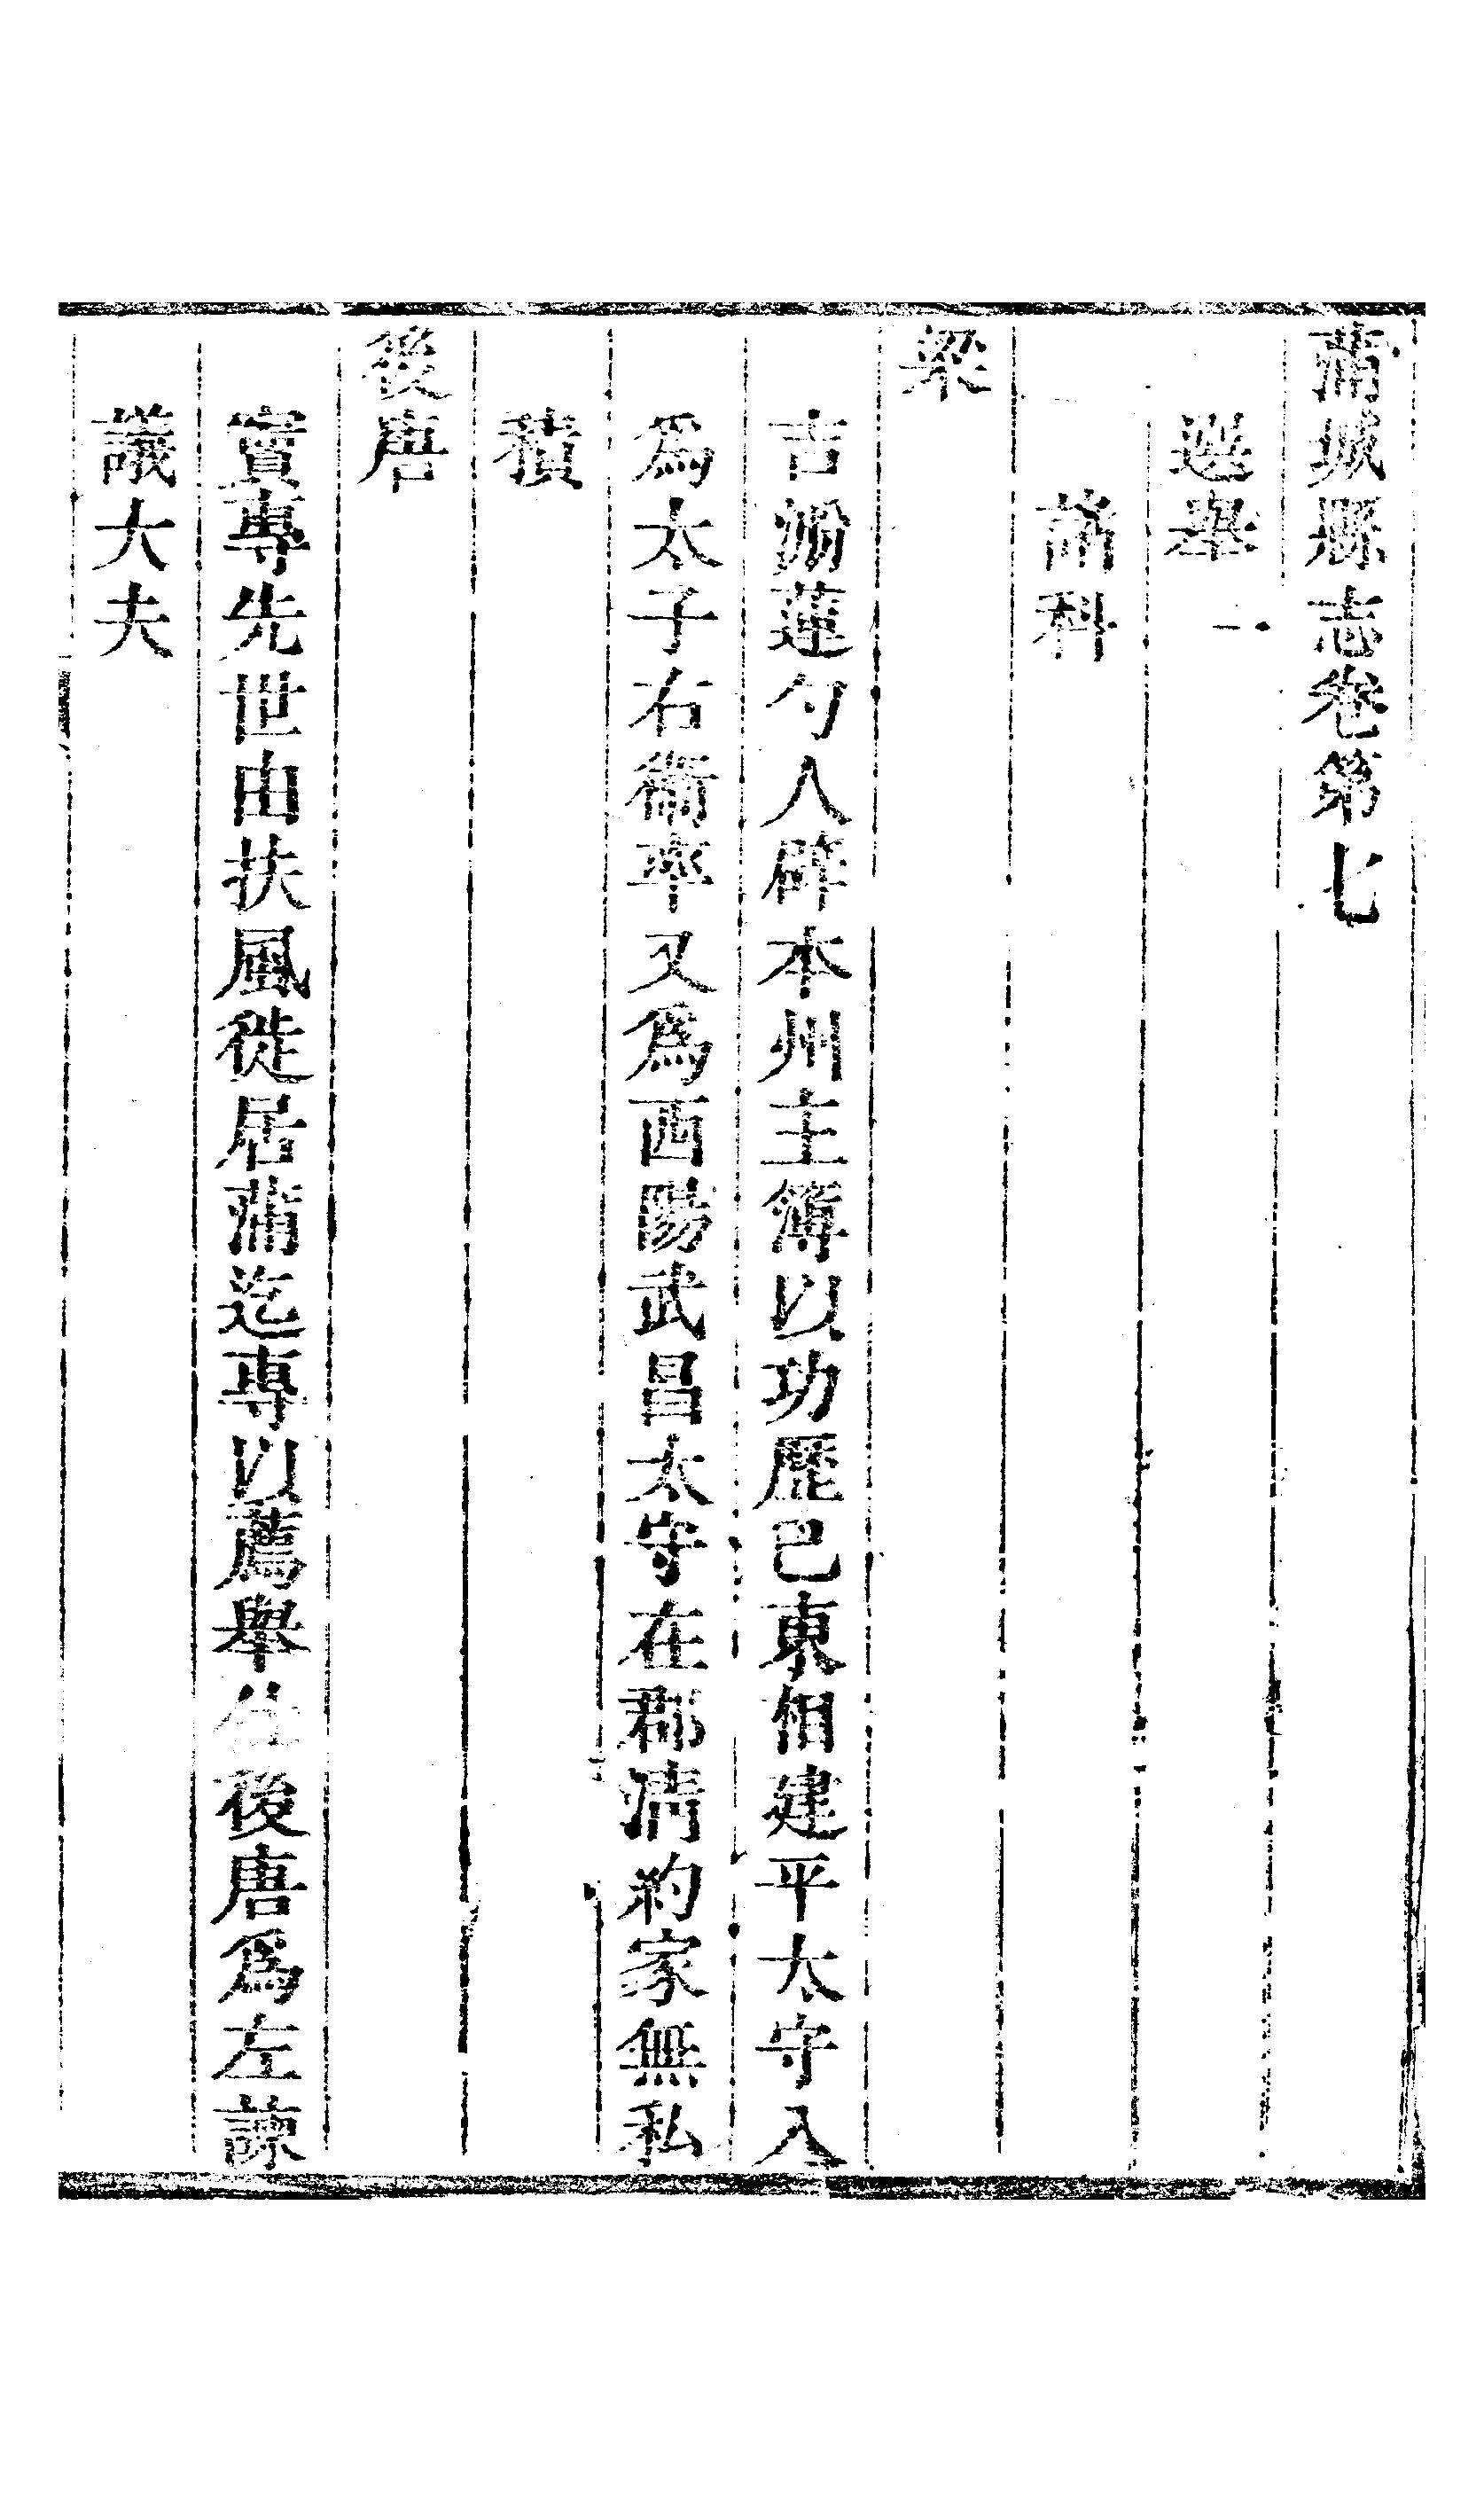 蒲城縣志卷第七
選舉一
諸科
梁
吉翂蓮勺人辟本州主簿以功歷巴東相建平太守入
爲太子右衞率又爲西陽武昌太守在郡清約家無私
積
後唐
竇專先世由扶風徙居蒲迄專以薦舉仕後唐爲左諫
議大夫